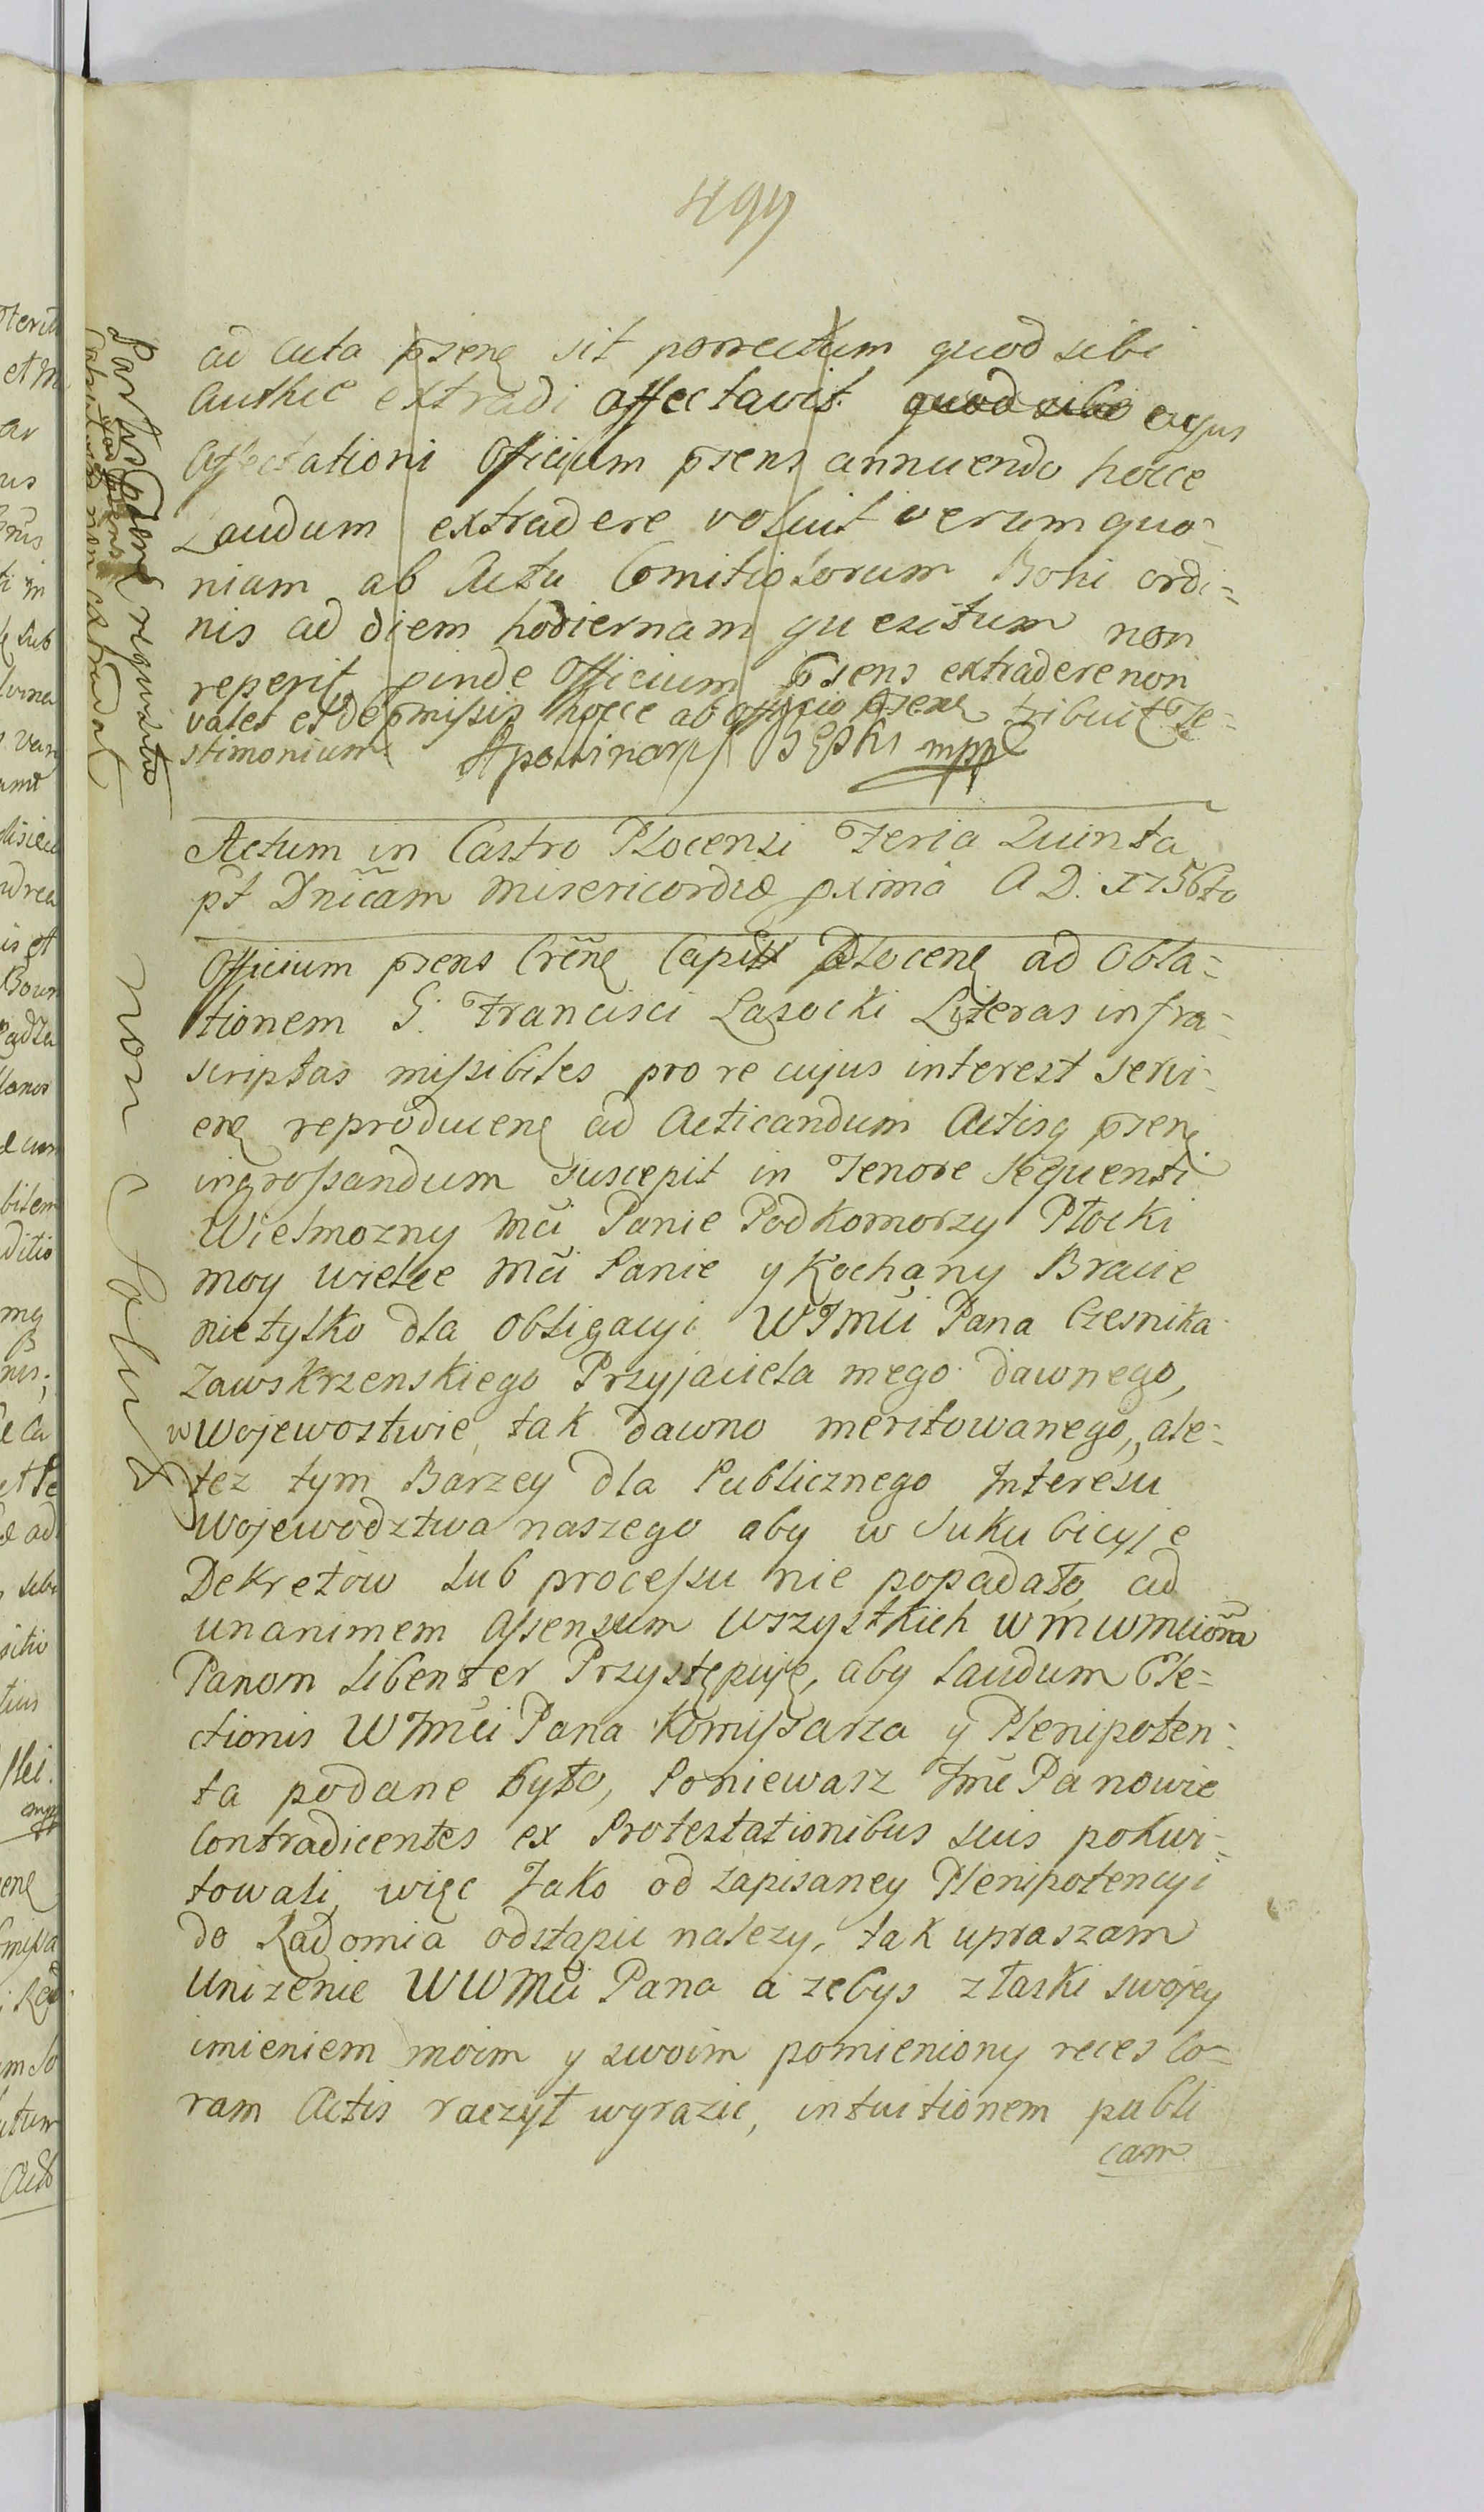 499
ad Acta psenę sit porrectum quod sibi
Authce extradi affectavit quod sibi cujus
Affectationi Officium psens annuendo hocce
Laudum extradere voluit verum quo-
niam ab Actu Comitiolorum Boni ordi-
nis ad diem hodiernam quesitum non
reperit, pinde Officium psens extradere non
valet et de pmissis hocce ab officio psenę tribuit Te-
stimonium. Apollinary Sępski mpp
Actum in Castro Plocensi Feria Quinta
pt Dnicam Misericordię pxima A D. 1756to
Officium psens Crenę Capitl Plocenę ad Obla-
tionem G. Francisci Lasocki Literas infra-
scriptas missibiles pro re cujus interest servi-
enę reproducenę ad Acticandum Actisq psenę
ingrossandum suscepit in Tenore Sequenti
Wielmozny Mci Panie Podkomorzy Płocki
moy wielce Mci Panie y Kochany Bracie
nietylko dla obligacyi WJmci Pana Czesnika
Zawskrzenskiego Przyjaciela mego dawnego,
w Wojewostwie tak dawno meritowanego, ale-
tez tym Barzey dla Publicznego Interesu
Wojewodztwa naszego aby w Sukubicyje
Dekretow lub processu nie popadało, ad
unanimem assensum wszystkich
Panom libenter Przystępuję, aby Laudum Ele-
ctionis WJmci Pana Komissarza y Plenipoten-
ta podane było, Poniewasz Jmc Panowie
Contradicentes ex Protestationibus suis pokwi-
towali, więc Jako od zapisaney Plenipotencyi
do Radomia odstąpic nalezy, tak upraszam
Unizenie WWMci Pana a zebys z łaski swojey
imieniem moim y swoim pomieniony reces Co-
ram Actis raczył wyrazic, intuitionem publi
cam
Non Solut